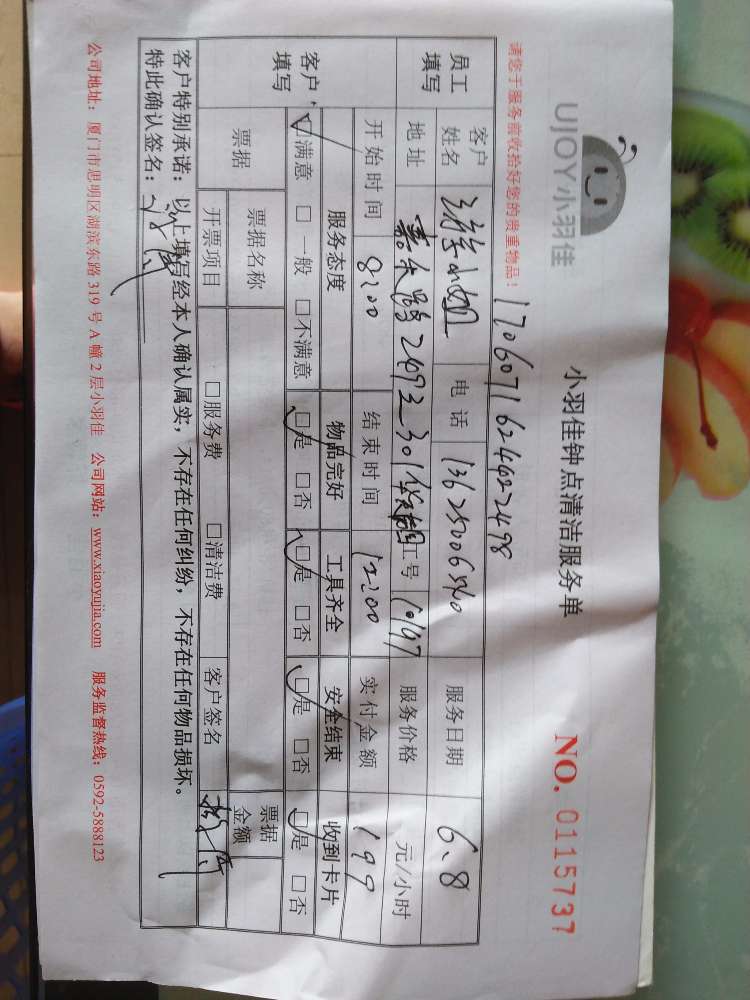 UJOY小羽佳
小羽佳钟点清洁服务单
NO. 0115737
请您于服务前收拾好您的贵重物品！
1706071624622498
员工填写
客户姓名 小姐 电话 服务日期 6.8
地址 工号 服务价格 元/小时
开始时间 8:00 结束时间 12:00 实付金额 199
客户填写
服务态度 物品完好 工具齐全 安全结束 收到卡片
☑满意 □一般 □不满意 ☑是 □否 ☑是 □否 ☑是 □否 ☑是 □否
票据 票据名称 票据金额
开票项目 □服务费 □清洁费 客户签名
客户特别承诺：以上填写经本人确认属实，不存在任何纠纷，不存在任何物品损坏。
特此确认签名：
公司地址：厦门市思明区湖滨东路 319 号 A 幢 2 层小羽佳 公司网站：www.xiaoyujia.com 服务监督热线：0592-5888123